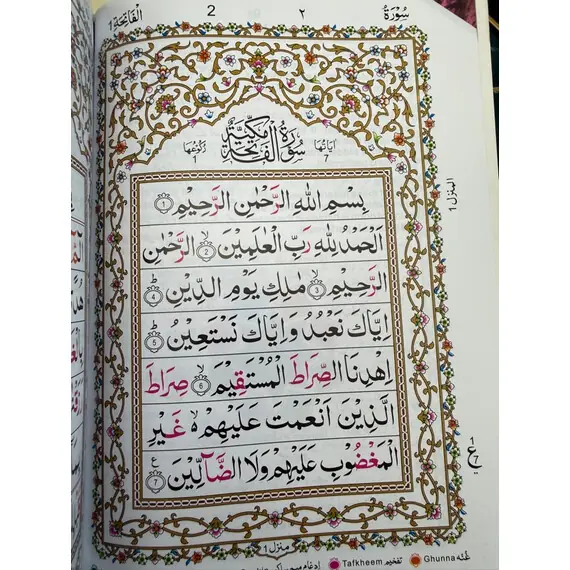 سُوْرَةُ ٢ 2 الْفَاتِحَة 1
اٰيَاتُهَا 7 سُوْرَةُ الْفَاتِحَةِ مَكِّيَّةٌ رُكُوْعُهَا 1
بِسْمِ اللهِ الرَّحْمٰنِ الرَّحِيْمِ ۝1
اَلْحَمْدُ لِلّٰهِ رَبِّ الْعٰلَمِيْنَ ۙ۝2 الرَّحْمٰنِ
الرَّحِيْمِ ۙ۝3 مٰلِكِ يَوْمِ الدِّيْنِ ؕ۝4
اِيَّاكَ نَعْبُدُ وَاِيَّاكَ نَسْتَعِيْنُ ؕ۝5
اِهْدِنَا الصِّرَاطَ الْمُسْتَقِيْمَ ۙ۝6 صِرَاطَ
الَّذِيْنَ اَنْعَمْتَ عَلَيْهِمْ ۙ۬ غَيْرِ
الْمَغْضُوْبِ عَلَيْهِمْ وَلَا الضَّآلِّيْنَ ۝7 ع
المنزل 1
1 ع 7
منزل 1
غُنّه Ghunna تفخيم Tafkheem